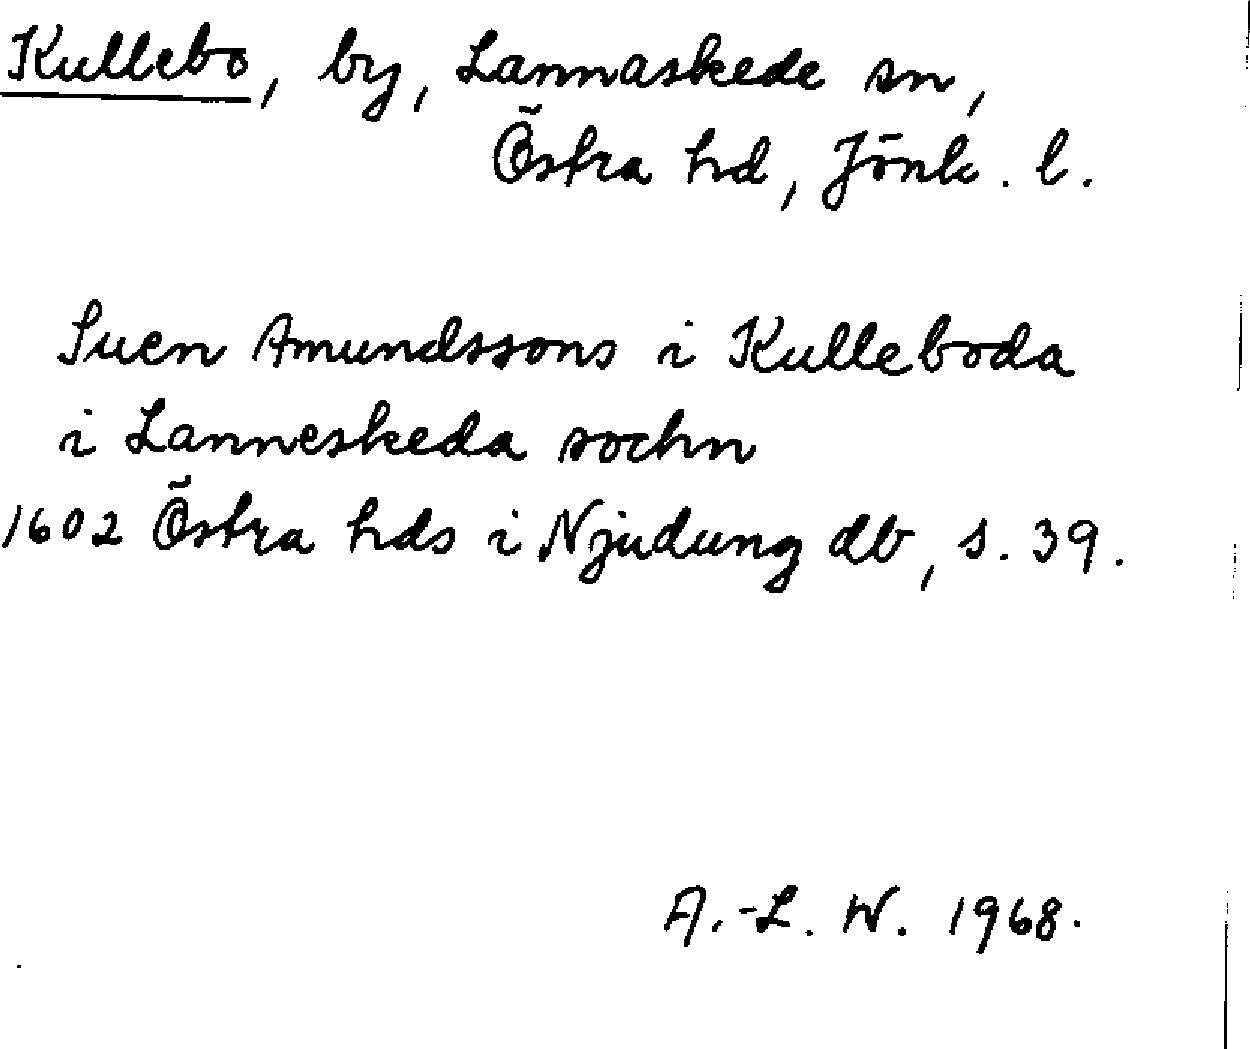 Kullebo, by, Lannaskede sn,
Östra hd, Jönk. l.
Suen Amundssons i Kulleboda
i Lanneskeda sochn
1602 Östra hds i Njudung db, s. 39.
A.-L. W. 1968.